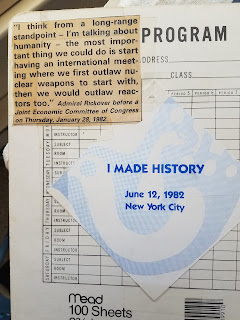 "I think from a long-range
standpoint – I'm talking about
humanity – the most impor-
tant thing we could do is start
having an international meet-
ing where we first outlaw nu-
clear weapons to start with,
then we would outlaw reac-
tors too." Admiral Rickover before a
Joint Economic Committee of Congress
on Thursday, January 28, 1982.
PROGRAM
ADDRESS
CLASS
PERIOD 6
PERIOD 7
I MADE HISTORY
June 12, 1982
New York City
INSTRUCTOR
SUBJECT
ROOM
INSTRUCTOR
SUBJECT
ROOM
INSTRUCTOR
SUBJECT
ROOM
INSTRUCTOR
Mead
100 Sheets